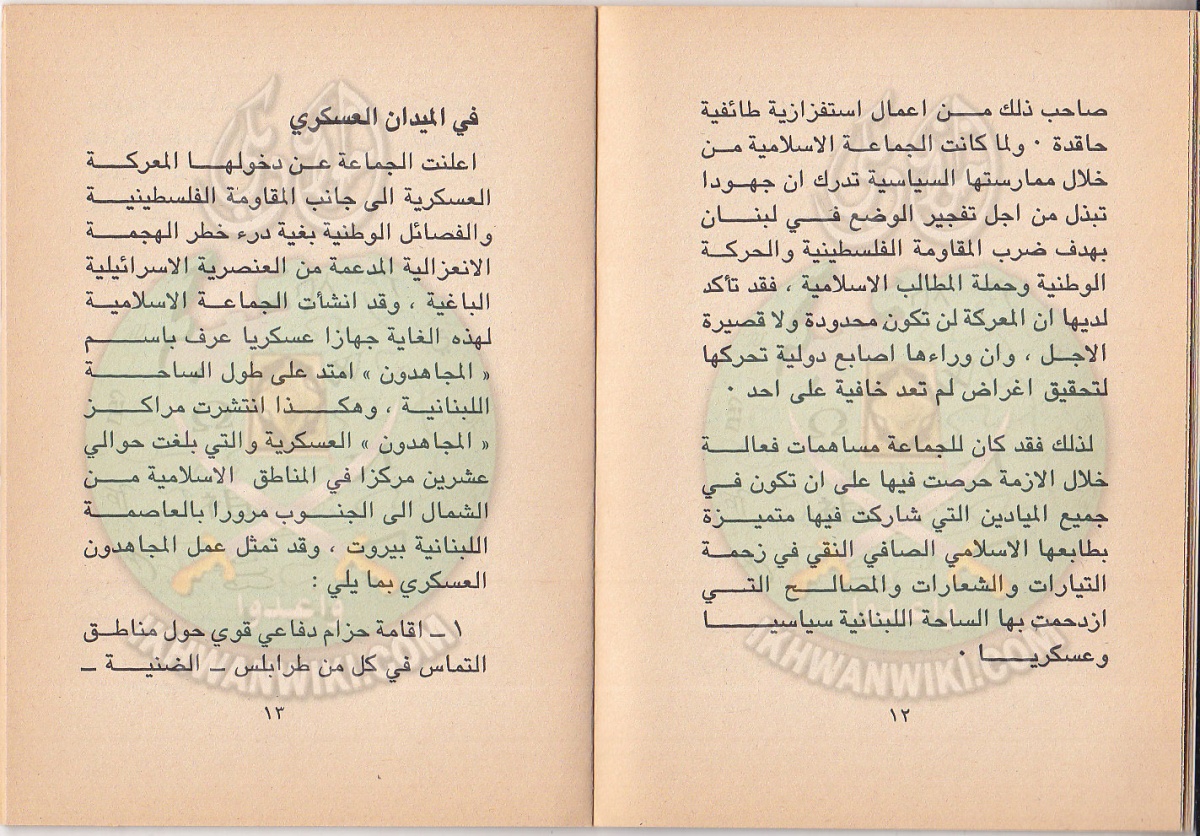 صاحب ذلك مــن اعمال استفزازية طائفية
حاقدة · ولما كانت الجماعة الاسلامية من
خلال ممارستها السياسية تدرك ان جهودا
تبذل من اجل تفجير الوضع في لبنان
بهدف ضرب المقاومة الفلسطينية والحركة
الوطنية وحملة المطالب الاسلامية ، فقد تأكد
لديها ان المعركة لن تكون محدودة ولا قصيرة
الاجل ، وان وراءها اصابع دولية تحركها
لتحقيق اغراض لم تعد خافية على احد ·
لذلك فقد كان للجماعة مساهمات فعالة
خلال الازمة حرصت فيها على ان تكون في
جميع الميادين التي شاركت فيها متميزة
بطابعها الاسلامي الصافي النقي في زحمة
التيارات والشعارات والمصالح التي
ازدحمت بها الساحة اللبنانية سياسيا
وعسكريا ·
١٢
في الميدان العسكري
اعلنت الجماعة عن دخولها المعركة
العسكرية الى جانب المقاومة الفلسطينية
والفصائل الوطنية بغية درء خطر الهجمة
الانعزالية المدعمة من العنصرية الاسرائيلية
الباغية ، وقد انشأت الجماعة الاسلامية
لهذه الغاية جهازا عسكريا عرف باسم
« المجاهدون » امتد على طول الساحة
اللبنانية ، وهكذا انتشرت مراكز
« المجاهدون » العسكرية والتي بلغت حوالي
عشرين مركزا في المناطق الاسلامية من
الشمال الى الجنوب مرورا بالعاصمة
اللبنانية بيروت ، وقد تمثل عمل المجاهدون
العسكري بما يلي :
١ ــ اقامة حزام دفاعي قوي حول مناطق
التماس في كل من طرابلس ــ الضنية ــ
١٣
وأعدوا
IKHWANWIKI.COM
IKHWANWIKI.COM